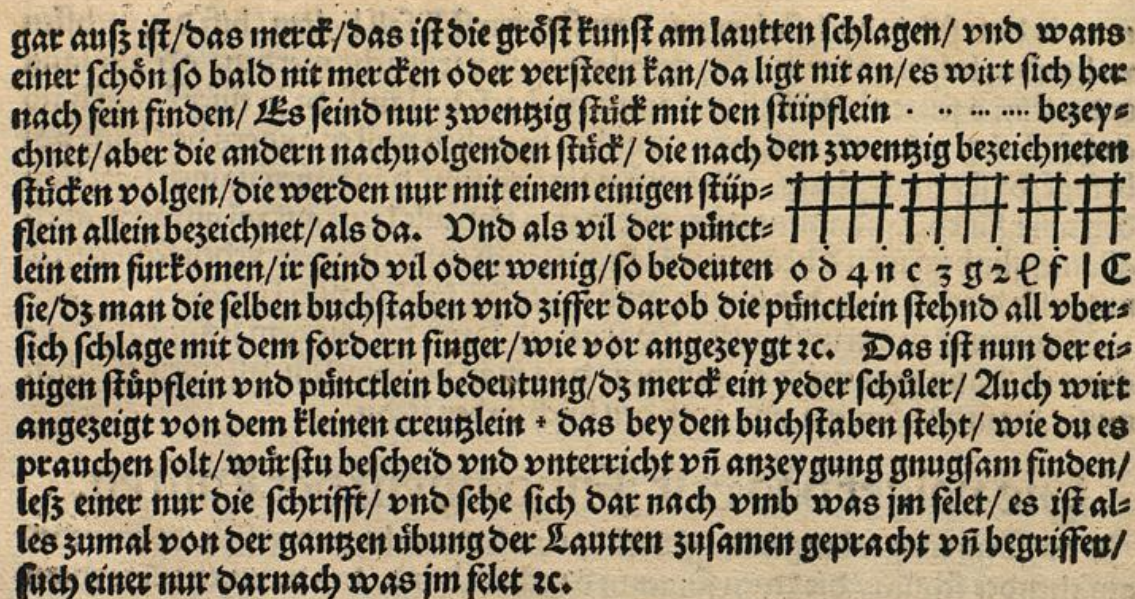 gar auſz iſt/das merck/das iſt die gröſt kunſt am lautten ſchlagen/ vnd wans
einer ſchön ſo bald nit mercken oder verſteen kan/da ligt nit an/es wirt ſich her
nach fein finden/ Es ſeind nur zwentzig ſtück mit den ſtüpflein · ·· ··· ···· bezey⸗
chnet/aber die andern nachuolgenden ſtück/ die nach den zwentzig bezeichneten
ſtücken volgen/die werden nur mit einem einigen ſtüp⸗
flein allein bezeichnet/als da. Vnd als vil der pünct⸗
lein eim furkomen/ir ſeind vil oder wenig/ſo bedeuten o d 4 n c z g 2 e f | C
ſie/dz man die ſelben buchſtaben vnd ziffer darob die pünctlein ſtehnd all vber⸗
ſich ſchlage mit dem fordern finger/wie vor angezeygt ꝛc. Das iſt nun der ei⸗
nigen ſtüpflein vnd pünctlein bedeutung/dz merck ein yeder ſchüler/ Auch wirt
angezeigt von dem kleinen creutzlein + das bey den buchſtaben ſteht/ wie du es
prauchen ſolt/würſtu beſcheid vnd vnterricht vn̄ anzeygung gnugſam finden/
leſz einer nur die ſchrifft/ vnd ſehe ſich dar nach vmb was jm felet/ es iſt al⸗
les zumal von der gantzen übung der Lautten zuſamen gepracht vn̄ begriffen/
ſuch einer nur darnach was jm felet ꝛc.